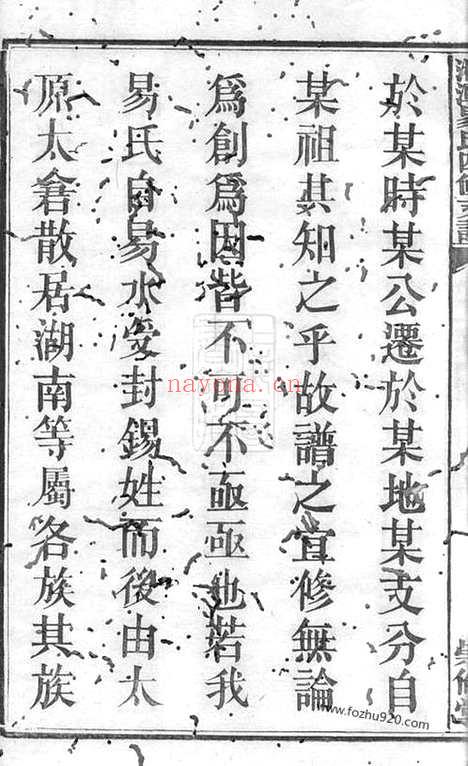 於某時某公遷於某地某支分自
某祖其知之乎故譜之宜修無論
爲創爲因皆不可不亟亟也若我
易氏自易水受封錫姓而後由太
原太倉散居湖南等屬各族其族
nayona.cn
www.fozhu920.com